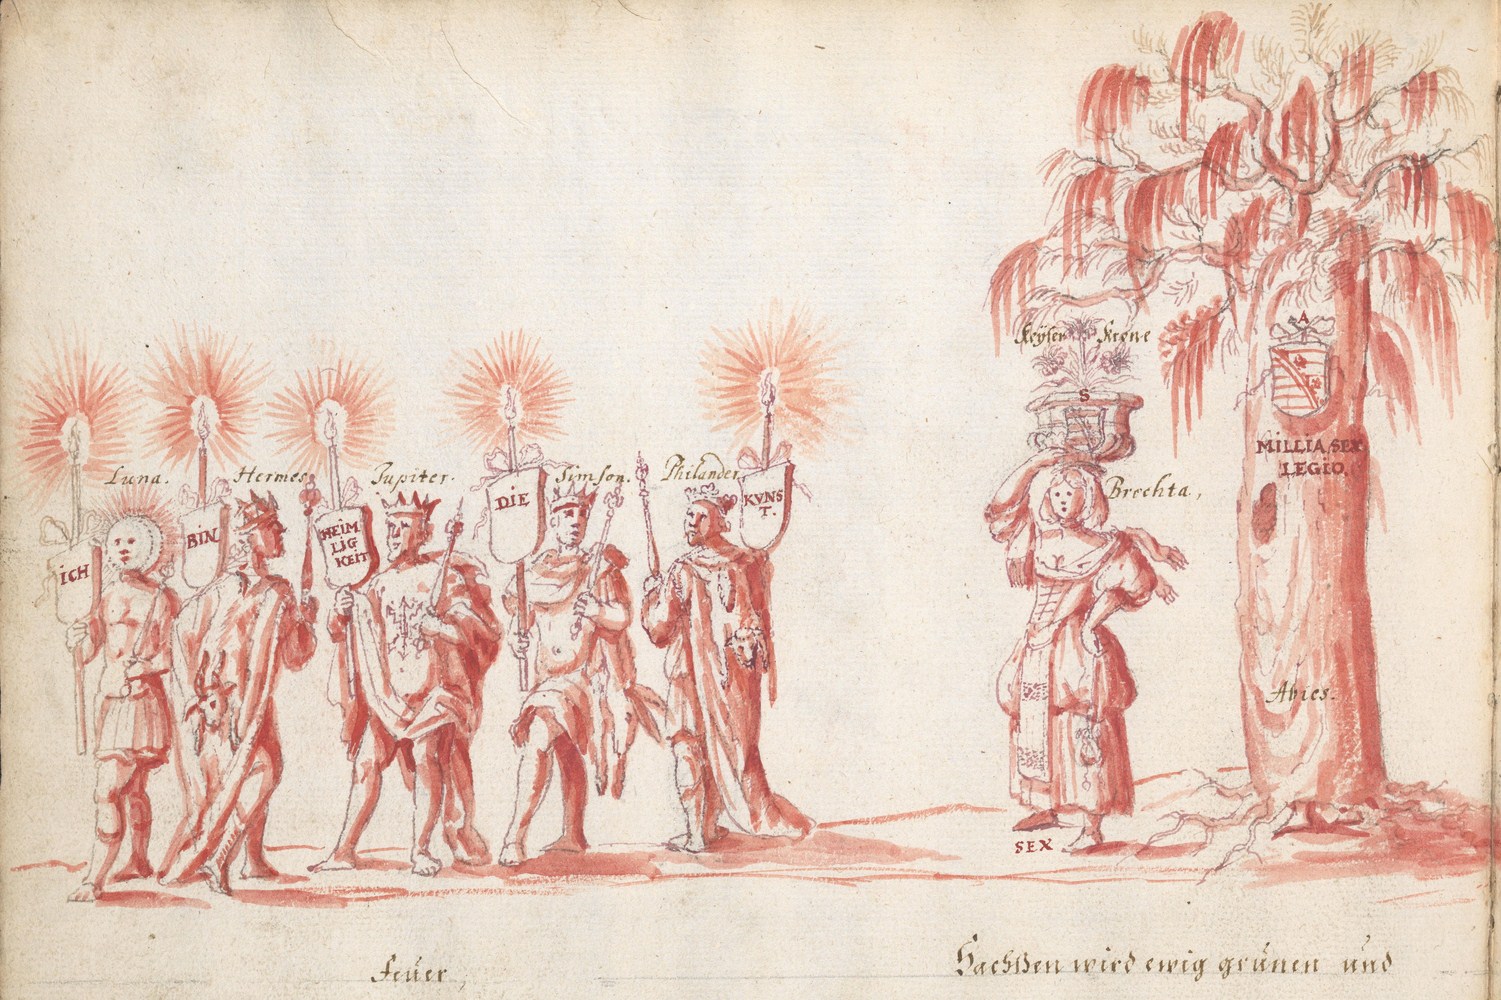 Keyser Krone
S
A
MILLIA SEX
LEGIO.
Luna.
Hermes
Jupiter.
Simson.
Philander.
Brechta,
ICH
BIN
HEIM
LIG
KEIT
DIE
KVNS
T.
Abies.
SEX
Feüer,
Sachßen wird ewig grünen und